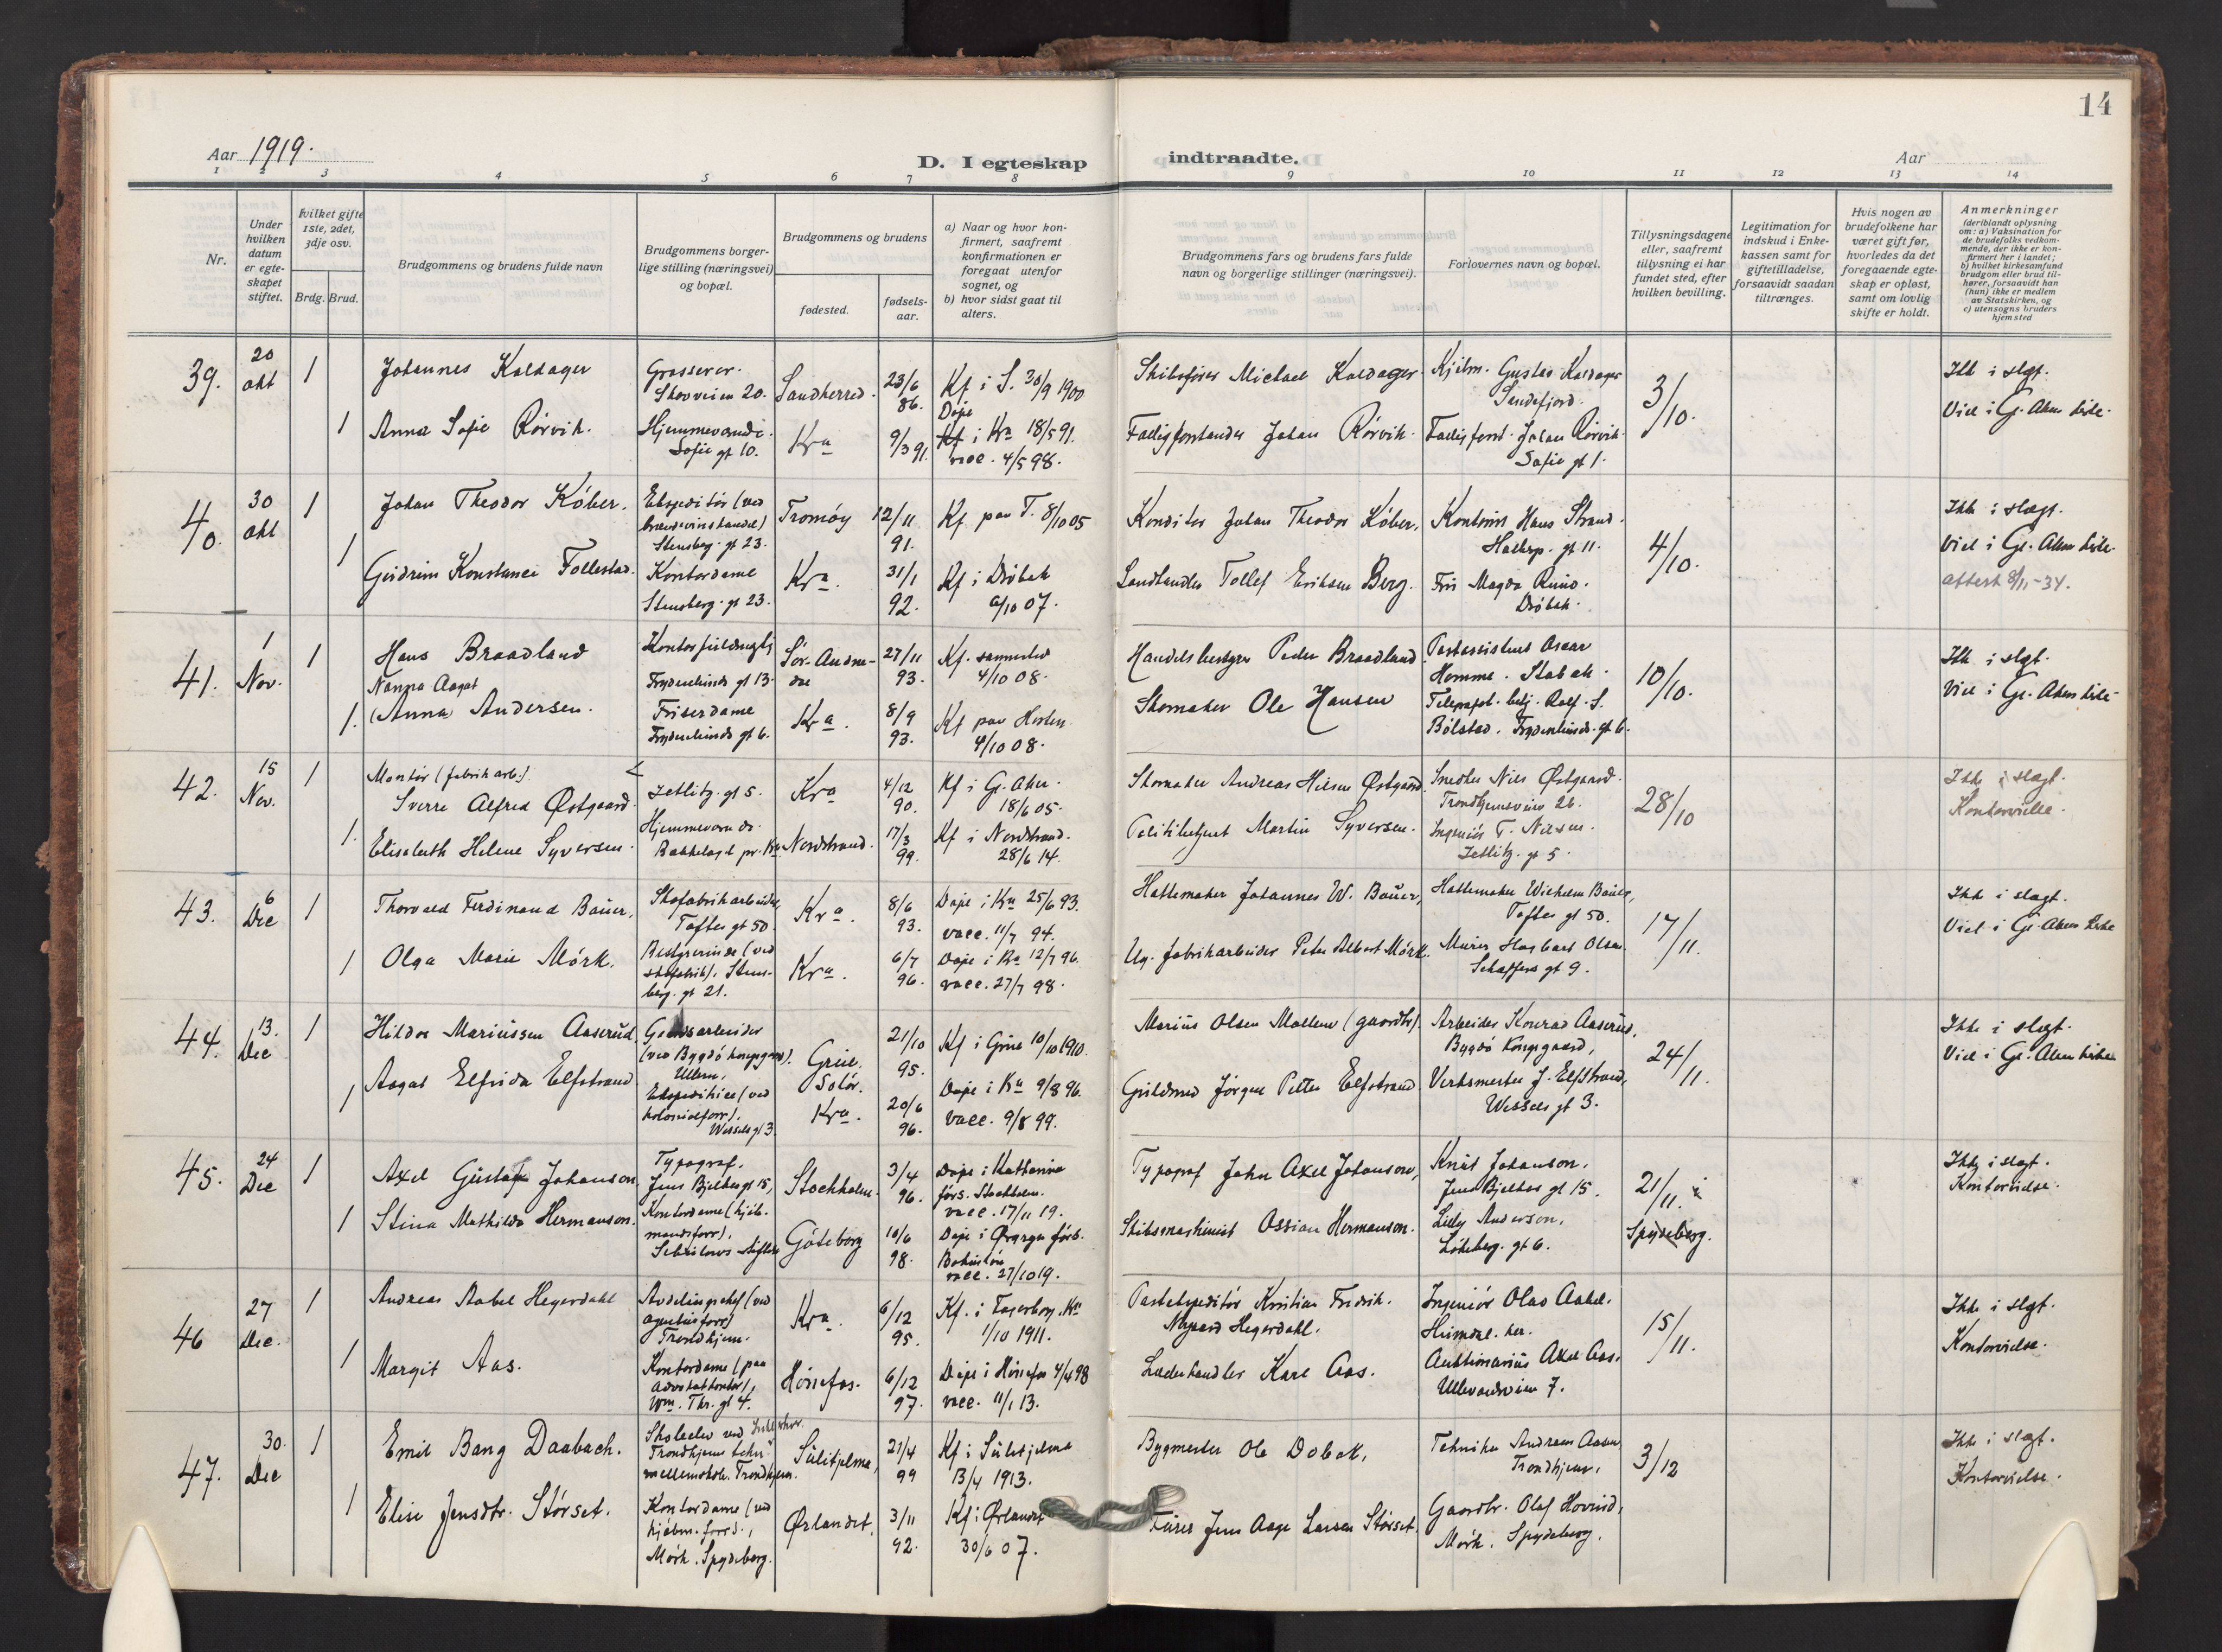 14
Aar 1919.
D. I egteskap indtraadte.
Aar
1 2 3 4 5 6 7 8 9 10 11 12 13 14
Nr.
Under hvilken datum er egteskapet stiftet.
hvilket gifte 1ste, 2det, 3dje osv.
Brdg. Brud.
Brudgommens og brudens fulde navn
Brudgommens borgerlige stilling (næringsvei) og bopæl.
Brudgommens og brudens
fødested.
fødselsaar.
a) Naar og hvor konfirmert, saafremt konfirmationen er foregaat utenfor sognet, og
b) hvor sidst gaat til alters.
Brudgommens fars og brudens fars fulde navn og borgerlige stillinger (næringsvei).
Forlovernes navn og bopæl.
Tillysningsdagene eller, saafremt tillysning ei har fundet sted, efter hvilken bevilling.
Legitimation for indskud i Enkekassen samt for giftetilladelse, forsaavidt saadan tiltrænges.
Hvis nogen av brudefolkene har været gift før, hvorledes da det foregaaende egteskap er opløst, samt om lovlig skifte er holdt.
Anmerkninger
(deriblandt oplysning om: a) Vaksination for de brudefolks vedkommende, der ikke er konfirmert her i landet;
b) hvilket kirkesamfund brudgom eller brud tilhører, forsaavidt han (hun) ikke er medlem av Statskirken, og
c) utensogns bruders hjemsted
39. 20 okt 1 Johannes Kaldager Grosserer. Skovveien 20. Sandherred. 23/6 86. Kf i S. 30/9 1900 Skibsfører Michael Kaldager. Gustav Kaldager Sandefjord. 3/10. Ikke i slgt.
1 Anna Sofie Rørvik. Hjemmeværende. Sofie gt 10. Kra 9/3 91. Døpt i Kra 18/5 91. vacc. 4/5 98. Johan Rørvik. Johan Rørvik. Sofie gt 1. Viet i Gl. Aker kirke.
40. 30 okt 1 Johan Theodor Köber. Ekspeditør (ved brændevinshandel) Stensberg. gt 23. Tromøy 12/11 91. Kf paa T. 8/10 05 Konditor Johan Theodor Köber. Kontorist Hans Strand. gt 11. 4/10. Ikke i slægt.
1 Gudrun Konstance Follestad. Kontordame Stensberg. gt 23. Kra. 31/1 92. Kf i Drøbak 6/10 07. Landhandler Tollef Eriksen Berg. Magda Ruud. Drøbak. Viet i Gl. Aker kirke.
attest 8/11-34.
41. 1 Nov. 1 Hans Braadland Frydenlunds gt 13. Sør-Audnedal 27/11 93. Kf. sammested 4/10 08. Handelsbestyrer Peder Braadland Postassistent Oscar Homme. Stabæk. 10/10. Ikke i slgt.
Nanna Aagot
1. (Anna) Andersen. Friserdame Frydenlunds gt 6. Kra. 8/9 93. Kf paa Horten 4/10 08. Skomaker Ole Hansen Telegrafst. betj. Rolf. S. Bølstad. Frydenlunds. gt 6. Viet i Gl. Aker kirke
42. 15 Nov. 1 Montør (fabrikarb.) Sverre Alfred Østgaard. Jetlitz. gt 5. Kra 4/12 90. Kf i Gl. Aker. 18/6 05. Skomaker Andreas Nilsen Østgaard. Snedker Nils Østgaard. Trondhjemsveien 26. 28/10 Ikke i slægt.
1. Elisabeth Helene Syversen. Hjemmeværende. Bækkelaget pr. Kra Nordstrand. 17/3 99. Kf i Nordstrand. 28/6 14. Politibetjent Martin Syversen. Ingeniør T. Nilsen. Jetlitz. gt 5. Kontorvielse.
43. 6 Dec 1 Thorvald Ferdinand Bauer. Skofabrikarbeider, Toftes gt 50. Kra. 8/6 93. Døpt i Kra 25/6 93. vacc. 11/7 94. Hattemaker Johannes W. Bauer, Hattemaker Wilhelm Bauer, Toftes gt 50. 17/11. Ikke i slægt.
1 Olga Marie Mörk. (ved skofabrik). Stensberg. gt 21. Kra. 6/7 96. Døpt i Kra 12/7 96. vacc. 27/7 98. Ug. fabrikarbeider Peter Albert Mörk. Murer Olsen. Schæffers gt 9. Viet i Gl. Aker kirke
44. 13. Dec 1 Hildor Mariussen Aaserud. Gaardsarbeider (ved Bygdö kongsgaard). Ullern. Grue. Solør. 21/10 95. Kf i Grue 10/10 1910. Marius Olsen Mollerud (gaardbr.). Arbeider Konrad Aaserud, Bygdö Kongsgaard, 24/11. Ikke i slgt.
1 Aagot Elfrida Elfstrand Ekspeditrice (ved kolonialforr.). Wessels gt 3. Kra. 20/6 96. Døpt i Kra 9/8 96. vacc. 9/8 99. Jörgen Petter Elfstrand Verksmester J. Elfstrand, Wessels gt 3. Viet i Gl. Aker kirke
45. 24 Dec 1 Axel Gustaf Johanson. Typograf. Jens Bjelkes gt 15, Stockholm. 3/4 96. Døpt i Katharina förs. Stockholm. vacc. 17/11 19. Typograf John Axel Johanson, Knut Johanson. Jens Bjelkes gt 15. 21/11. i Spydeberg. Ikke i slægt.
1 Stina Mathilda Hermanson. Kontordame (kjøbmandsforr.). Göteborg 10/6 98. Döpt i Örgryte förs. Bohuslän vacc. 27/10 19. Skibsmaskinist Ossian Hermanson. Lilly Anderson. Løkeberg. gt 6. Kontorvielse.
46 27 Dec. 1 Andreas Aabel Hegerdahl Avdelingschef (ved agenturforr.) Trondhjem. Kra. 6/12 95. Kf. i Fagerborg. Kra 1/10 1911. Postekspeditör Kristian Fredrik. Nygaard Hegerdahl. Ingeniör Olav Aabel. Heimdal. 15/11. Ikke i slgt.
1 Margit Aas. Kontordame (paa advokatkontor), Wm. Thr. gt 4. Hönefos. 6/12 97. Döpt i Hönefos 4/4 98 vacc. 11/1 13. Læderhandler Karl Aas. Auktionarius Axel Aas. Ullevaalsveien 7. Kontorvielse.
47. 30. Dec 1 Emil Bang Daabach. Skoleelev ved Trondhjems tekn. mellemskole. Trondhjem. Sulitjelma. 21/4 99 Kf i Sulitjelma 13/4 1913. Bygmester Ole Dobak. Tekniker Andreas Aasen, Trondhjem. 3/12 Ikke i slægt.
1 Elise Jensdtr. Störset. Kontordame (ved kjøbm. forr.), Mörk. Spydeberg. Ørlandet. 3/11 92. Kf i Ørlandet 30/6 07. Jens Aage Larsen Störset. Gaardbr. Olaf Hovind, Mörk. Spydeberg. Kontorvielse.